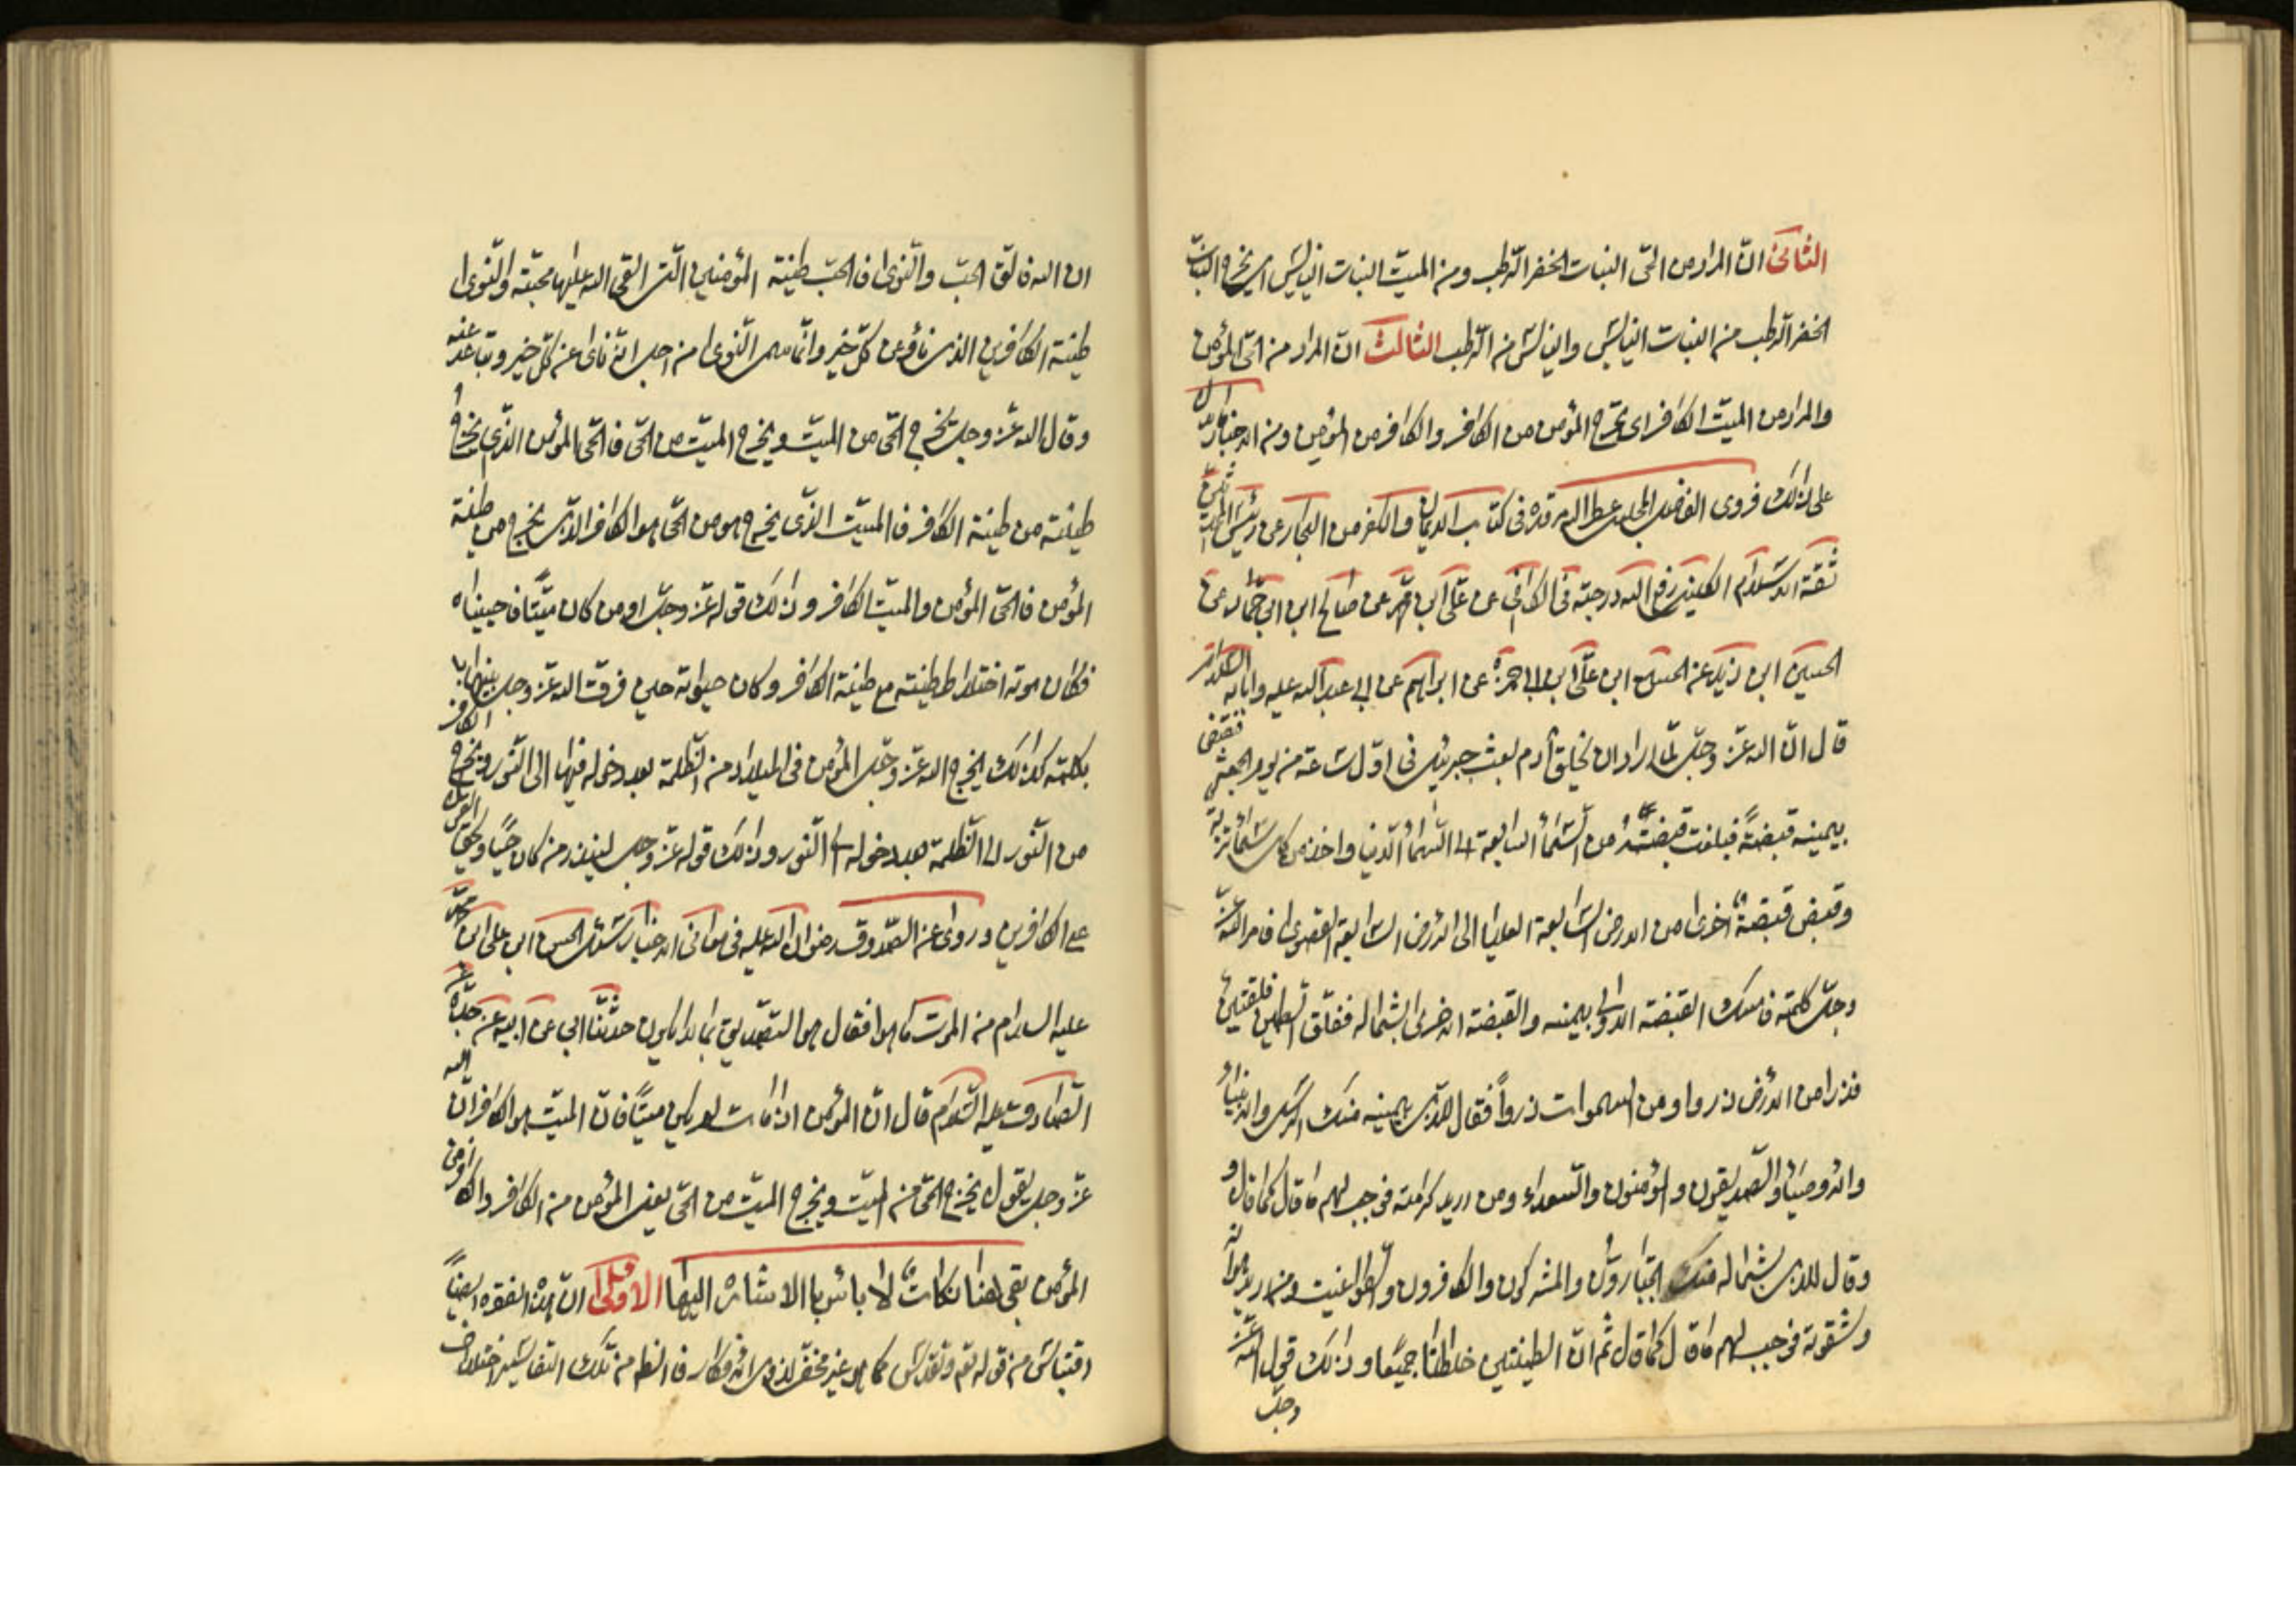 الثانى انّ المراد من الحّى النبات الخضر الرّطب ومن الميّت النبات اليابس اى يخرج النبات
الخضر الرّطب من النبات اليابس واليابس من الرّطب الثالث انّ المراد من الحّى المؤمن
والمراد من الميّت الكافر اى يخرج المؤمن من الكافر والكافر من المؤمن ومن الاخبار الدّالّ
على ذلك فروى الفاضل المجلسى عطر اللّه مرقده فى كتاب الايمان والكفر من البحار عن رئيس المحدّثين
ثقة الاسلام الكلينى رفع اللّه درجته فى الكافى عن علّى ابن محمّد عن صالح ابن ابى حمّاد عن
الحسين ابن زيد عن الحسن ابن علّى ابن ابى حمزة عن ابراهيم عن ابى عبد اللّه عليه واٰبائه السّلام
قال انّ اللّه عزّ وجلّ لمّا اراد ان يخلق اٰدم بعث جبرئيل فى اوّل ساعة من يوم الجمعة فقبض
بيمينه قبضةً فبلغت قبضتُه من السّمأ السابعة الى السّمأ الدّنيا واخذ من كل سمأ تربة
وقبض قبضةً اخرى من الارض السّابعة العليا الى الارض السّابعة القصوى فامر اللّه عزّ
وجلّ كلمته فامسك القبضة الاولى بيمينه والقبضة الاخرى بشماله ففلق الطين فلقتين
فذرا من الارض ذروا ومن السموات ذرواً فقال للّذى بيمينه منك الرّسل والانبيأ
والاوصيأ والصّديقون والمؤمنون والسّعداء ومن اريد كرامته فوجب لهم ما قال كما قال و
وقال للذى بشماله منك الجبّارون والمشركون والكافرون والطواغيت ومن اريد هوانه
وشقوته فوجب لهم ما قال كما قال ثم انّ الطينتين خلطتا جميعًا وذلك قول اللّه عزّ
وجلّ
ان اللّه فالق الحبّ والنّوى فالحبّ طينة المؤمنين الّتى القى اللّه عليها محبّته والنّوى
طينة الكافرين الذين ناؤعن كلّ خير وانّما سمى النّوى من اجل انّه ناى عن كلّ خير وتباعد عنه
وقال اللّه عزّ وجلّ يخرج الحّى من الميّت ويخرج الميّت من الحّى فالحّى المؤمن الّذى يخرج
طينته من طينة الكافر فالميّت الّذى يخرج هو من الحّى هو الكافر الّذى يخرج من طينة
المؤمن فالحّى المؤمن والميّت الكافر وذلك قوله عزّ وجلّ اومن كان ميّتًا فاحييناه
فكان موته اختلاط طينته مع طينة الكافر وكان حيوته حين فرّق اللّه عزّ وجلّ بينهما
بكلمته كذلك يخرج اللّه عزّ وجلّ المؤمن فى الميلاد من الظّلمة بعد دخوله فيها الى النّور ويخرج الكافر
من النّور الى الظّلمة بعد دخوله الى النّور وذلك قوله عزّ وجلّ لينذر من كان حيًّا ويحقّ القول
على الكافرين وروى عن الصّدوق رضوان اللّه عليه فى معانى الاخبار سئل الحسن ابن على ابن محمّد
عليه السلام من الموت ما هو فقال هو التصّديق بما لا يكون حدّثنا ابى عن ابيه عن جدّه عن
الصّادق عليه السّلام قال انّ المؤمن اذا مات لم يكن ميّتًا فانّ الميّت هو الكافر انّ اللّه
عزّ وجلّ يقول يخرج الحّى من الميّت ويخرج الميّت من الحّى يعنى المؤمن من الكافر والكافر من
المؤمن بقى هنا نكاتٌ لا باس با الاشارة اليها الاولى انّ هذه الفقره ايضاً
اقتباس من قوله تع وتقدّس كما هو غير مخفّى لذوى الافكار فانظر من تلك التفاسير اختلاف